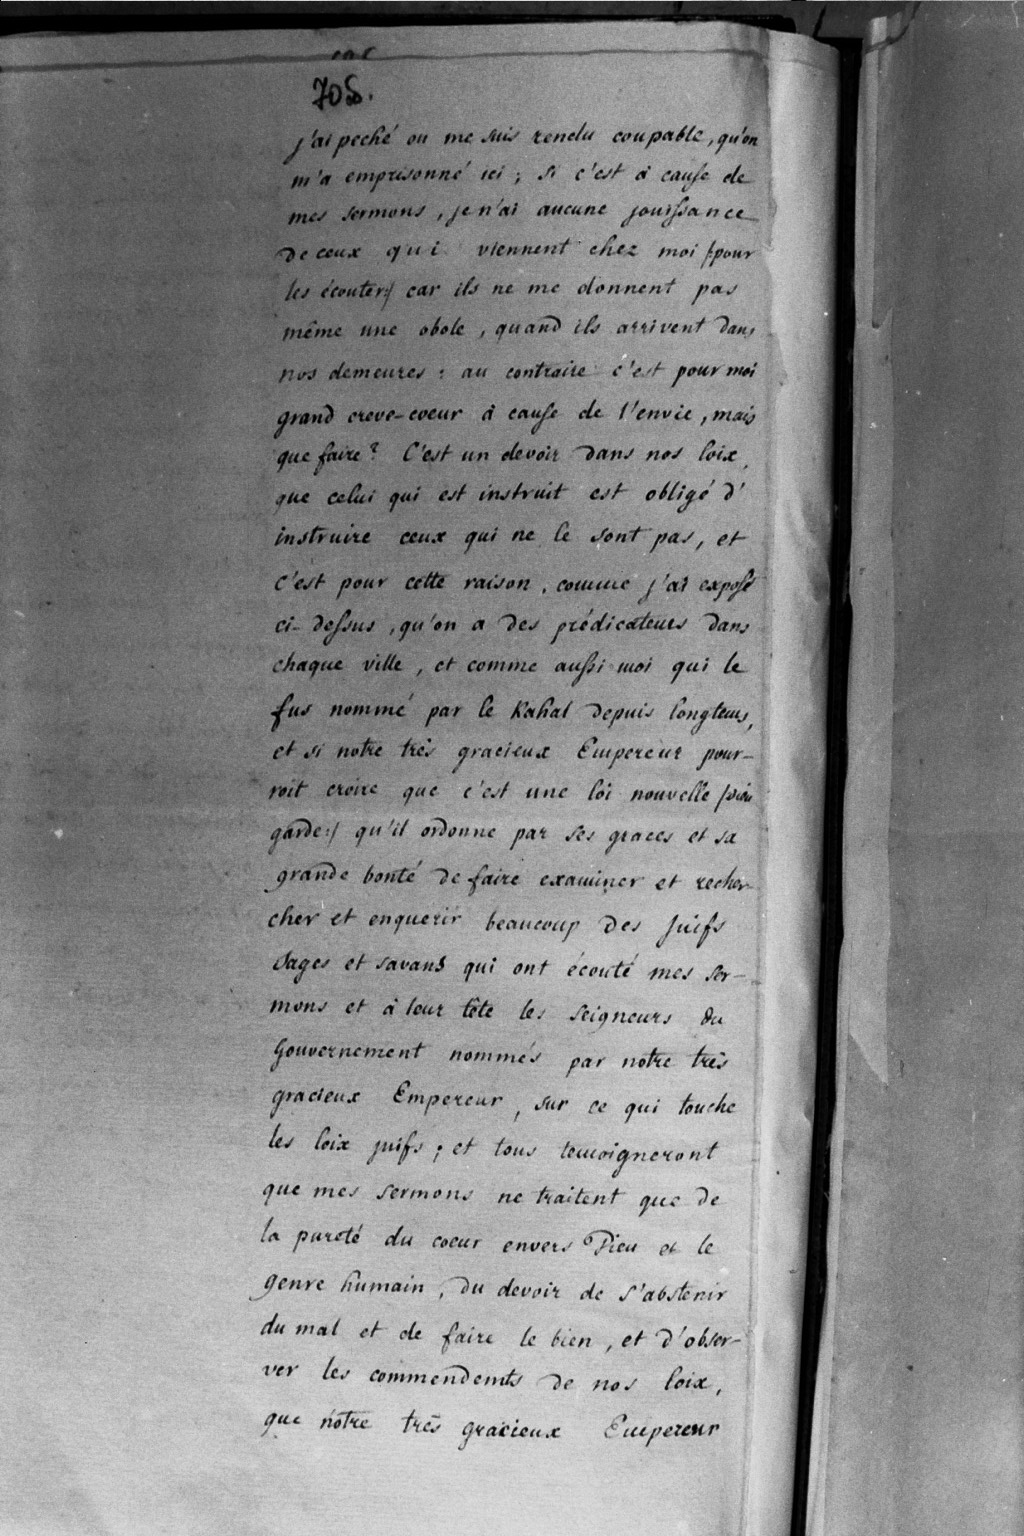 708.
j'ai peché ou me suis rendu coupable, qu'on
m'a emprisonné ici ; si c'est à cause de
mes sermons, je n'ai aucune jouissance
de ceux qui viennent chez moi /:pour
les écouter:/ car ils ne me donnent pas
même une obole, quand ils arrivent dans
nos demeures : au contraire c'est pour moi
grand creve-coeur à cause de l'envie, mais
que faire? C'est un devoir dans nos loix,
que celui qui est instruit est obligé d'
instruire ceux qui ne le sont pas, et
c'est pour cette raison, comme j'ai exposé
ci-dessus, qu'on a des prédicateurs dans
chaque ville, et comme aussi moi qui le
fus nommé par le Kahal depuis longtems,
et si notre très gracieux Empereur pour-
roit croire que c'est une loi nouvelle /:Dieu
garde:/ qu'il ordonne par ses graces et sa
grande bonté de faire examiner et recher-
cher et enquerir beaucoup des Juifs
sages et savans qui ont écouté mes ser-
mons et à leur tête les seigneurs du
Gouvernement nommés par notre très
gracieux Empereur, sur ce qui touche
les loix juifs ; et tous temoigneront
que mes sermons ne traitent que de
la pureté du coeur envers Dieu et le
genre humain, du devoir de s'abstenir
du mal et de faire le bien, et d'obser-
ver les commendemts de nos loix,
que notre très gracieux Empereur